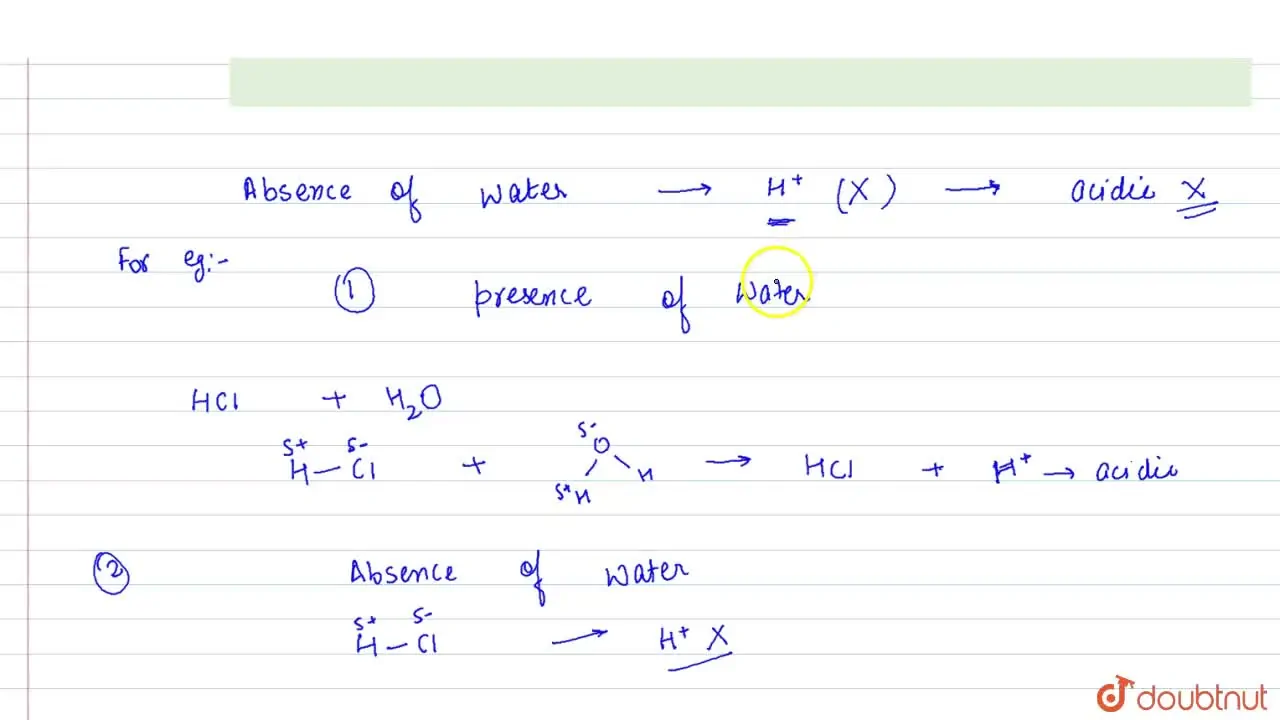 Absence of water → H⁺ (X) → acidic X
For eg:-
① presence of water
HCl + H₂O
δ+ δ- δ-
H — Cl + O → HCl + H⁺ → acidic
δ+ H H
② Absence of water
δ+ δ-
H — Cl → H⁺ X
doubtnut